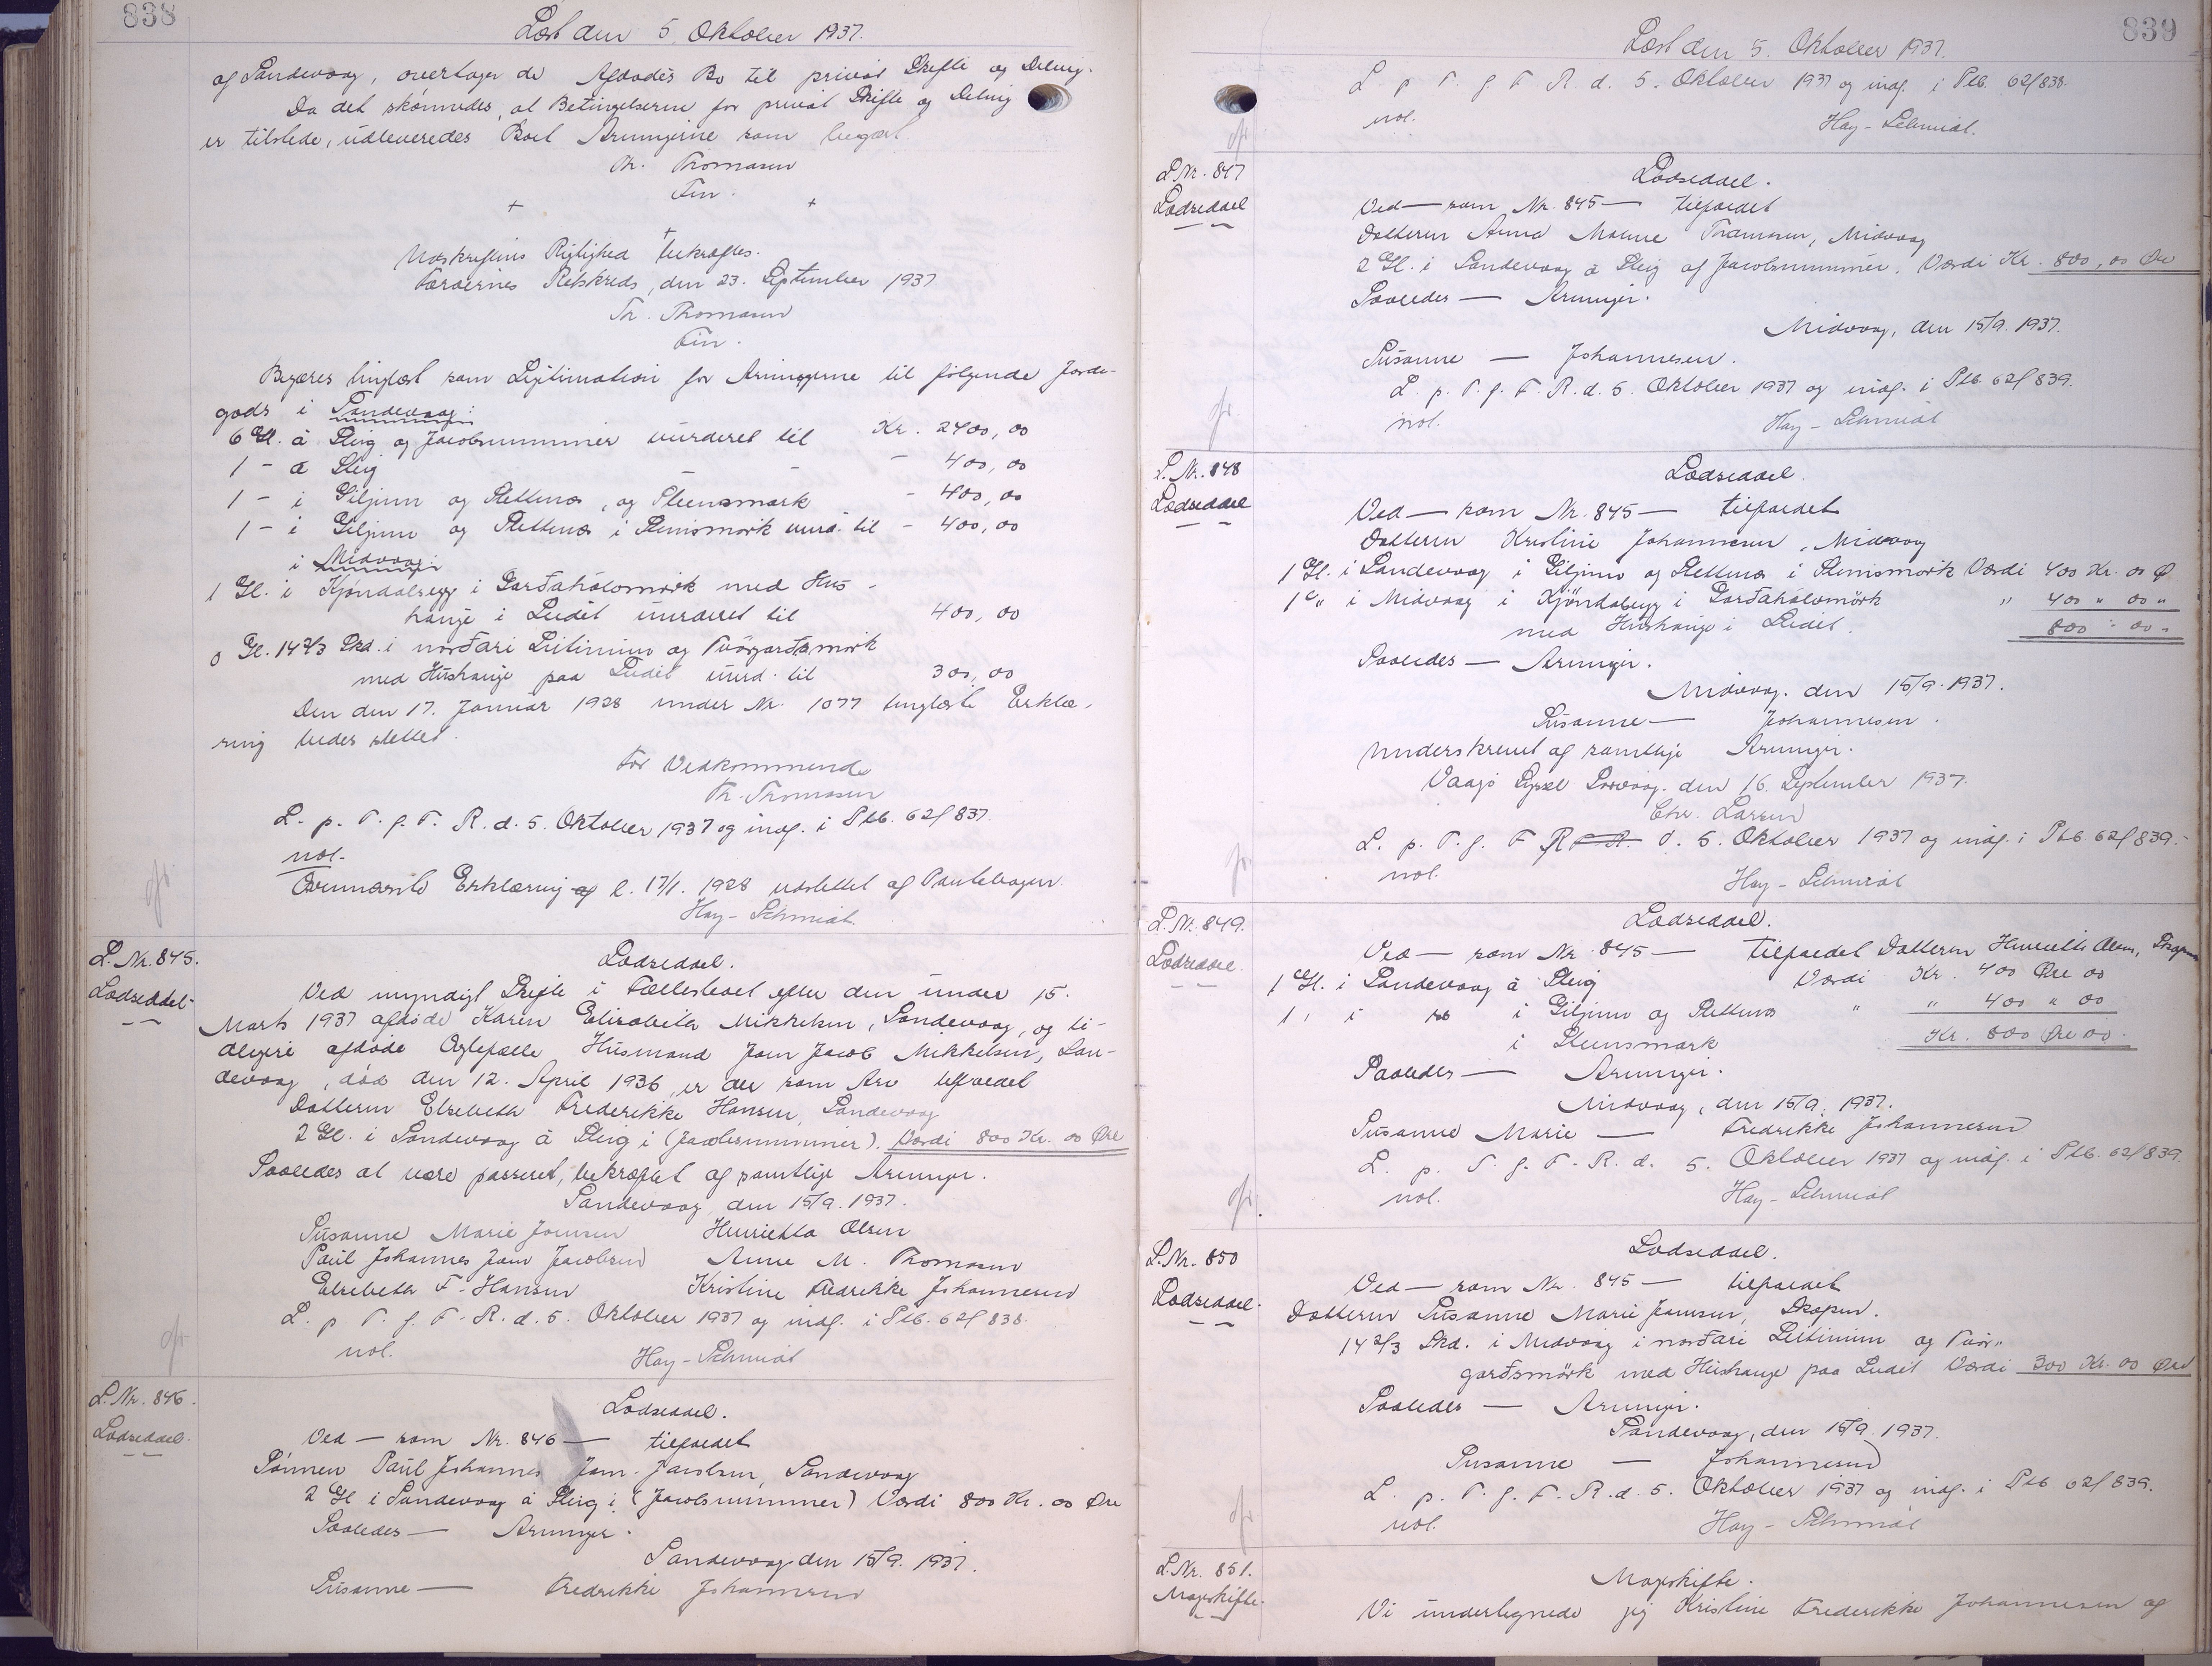 838
Læst den 5. Oktober 1937.
af Sandevaag, overtager de Afdødes Bo til privat Skifte og Deling.
Da det skønnedes, at Betingelserne for privat Skifte og Deling
er tilstede, udleveredes Boet Arvingerne som begært
Th. Thomasen
Fm.
+ +
+
Udskriftens Rigtighed bekræftes.
Færøernes Retskreds, den 23. September 1937
Th. Thomasen
Fm.
Begæres tinglæst som Legitimation for Arvingerne til følgende Jorde-
gods i Sandevaag:
6 Gl. á Steig og Jacobsnummer vurderet til Kr. 2400,00
1 - á Steig - - - 400,00
1 - i Giljum og Slettenes, og Steensmark - 400,00
1 - i Giljum og Slettenes i Stensmørk vurd. til - 400,00
i Midvaag:
1 Gl. i Kjøndalsegg i Garðahólomørk med Hus-
hauge i Ludet vurderet til 400,00
0 Gl. 14 2/3 Skd. i norðari Leitinum og Tvørgarðsmørk
med Hushauge paa Ludet vurd. til 300,00
Den den 17. Januar 1928 under Nr. 1077 tinglæste Erklæ-
ring bedes slettet.
For Vedkommende
Th. Thomasen
L. p. T. f. F. R. d. 5. Oktober 1937 og indf. i Ptb. 62f 837.
nol.
Ovennævnte Erklæring af l. 17/1. 1928 udslettet af Pantebogen.
Hay-Schmidt.
L. Nr. 845.
Lodseddel.
Lodseddel.
Ved myndigt Skifte i Fællesboet efter den under 15.
Marts 1937 afdøde Karen Elisabeth Mikkelsen, Sandevaag, og ti-
dligere afdøde Ægtefælle Husmand Joen Jacob Mikkelsen, San-
devaag, død den 12. April 1936, er der som Arv tilfaldet
Datteren Elsebeth Frederikke Hansen, Sandevaag
2 Gl. i Sandevaag á Steig i (Jacobsnummer). Værdi 800 Kr. 00 Øre
Saaledes at være passeret, bekræftet af samtlige Arvinger.
Sandevaag den 15/9. 1937.
Susanne Marie Joensen Henrietta Olsen
Paul Johannes Joen Jacobsen Anne M. Thomasen
Elsebeth F. Hansen Kristine Fredrikke Johannesen
L. p T. f. F. R. d. 5. Oktober 1937 og indf. i Ptb. 62f 838.
nol.
Hay-Schmidt
L. Nr. 846.
Lodseddel.
Lodseddel.
Ved — som Nr. 846 — tilfaldet
Sønnen Paul Johannes Joen Jacobsen, Sandevaag
2 Gl i Sandevaag á Steig i (Jacobsnummer) Værdi 800 Kr. 00 Øre
Saaledes — Arvinger.
Sandevaag den 15/9. 1937.
Susanne — Fredrikke Johannesen
839
Læst den 5. Oktober 1937.
L. p T. f F R. d. 5. Oktober 1937 og indf. i Ptb. 62f 838.
nol.
Hay-Schmidt.
L. Nr. 847
Lodseddel
Lodseddel.
Ved — som Nr. 845 — tilfaldet
Datteren Anna Malene Thomsen, Midvaag
2 Gl. i Sandevaag á Steig af Jacobsnummer. Værdi Kr. 800,00 Øre
Saaledes — Arvinger.
Midvaag, den 15/9. 1937.
Susanne — Johannesen.
L. p. T. f. F. R. d. 5. Oktober 1937 og indf. i Ptb. 62f 839.
nol.
Hay-Schmidt
L. Nr. 848
Lodseddel
Lodseddel.
Ved — som Nr. 845 — tilfaldet
Datteren Kristine Johannesen, Midvaag
1 Gl. i Sandevaag i Giljum og Slettenes i Stensmørk Værdi 400 Kr. 00 Ø
1 " i Midvaag i Kjøndalsegg i Garðahólomørk " 400 " 00 "
med Hushauge i Ludet. 800 " 00 "
Saaledes — Arvinger.
Midvaag. den 15/9. 1937.
Susanne — Johannesen.
Underskrevet af samtlige Arvinger.
Vaagø Syssel Sørvaag. den 16. September 1937.
Chr. Larsen
L. p. T. f. F R d. 5. Oktober 1937 og indf. i Ptb. 62f 839.
nol.
Hay-Schmidt
L. Nr. 849.
Lodseddel.
Lodseddel.
Ved — som Nr. 845 — tilfaldet Datteren Henriette Olsen, Skopun
1 Gl. i Sandevaag á Steig Værdi Kr. 400 Øre 00
1 " i do i Giljum og Slettenes " " 400 " 00
i Steensmark Kr. 800 Øre 00.
Saaledes — Arvinger.
Midvaag, den 15/9. 1937.
Susanne Marie — Fredrikke Johannesen
L. p. T. f. F. R. d. 5. Oktober 1937 og indf. i Ptb. 62f 839.
nol.
Hay-Schmidt
L. Nr. 850
Lodseddel.
Lodseddel.
Ved — som Nr. 845 — tilfaldet
Datteren Susanne Marie Joensen, Skopun.
14 2/3 Skd. i Midvaag i norðari Leitinum og Tvør-
garðsmørk med Hushauge paa Ludet Værdi 300 Kr. 00 Øre
Saaledes — Arvinger.
Sandevaag, den 15/9. 1937.
Susanne — Johannesen
L. p. T. f. F. R. d. 5. Oktober 1937 og indf. i Ptb 62f 839.
nol.
Hay-Schmidt
L. Nr. 851.
Mageskifte.
Mageskifte.
Vi undertegnede jeg Kristine Frederikke Johannesen og